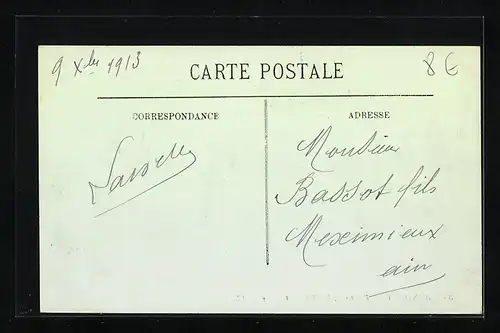 9 Xbre 1913
8 €
CARTE POSTALE
CORRESPONDANCE
ADRESSE
Monsieur
Bassot fils
Meximieux
ain